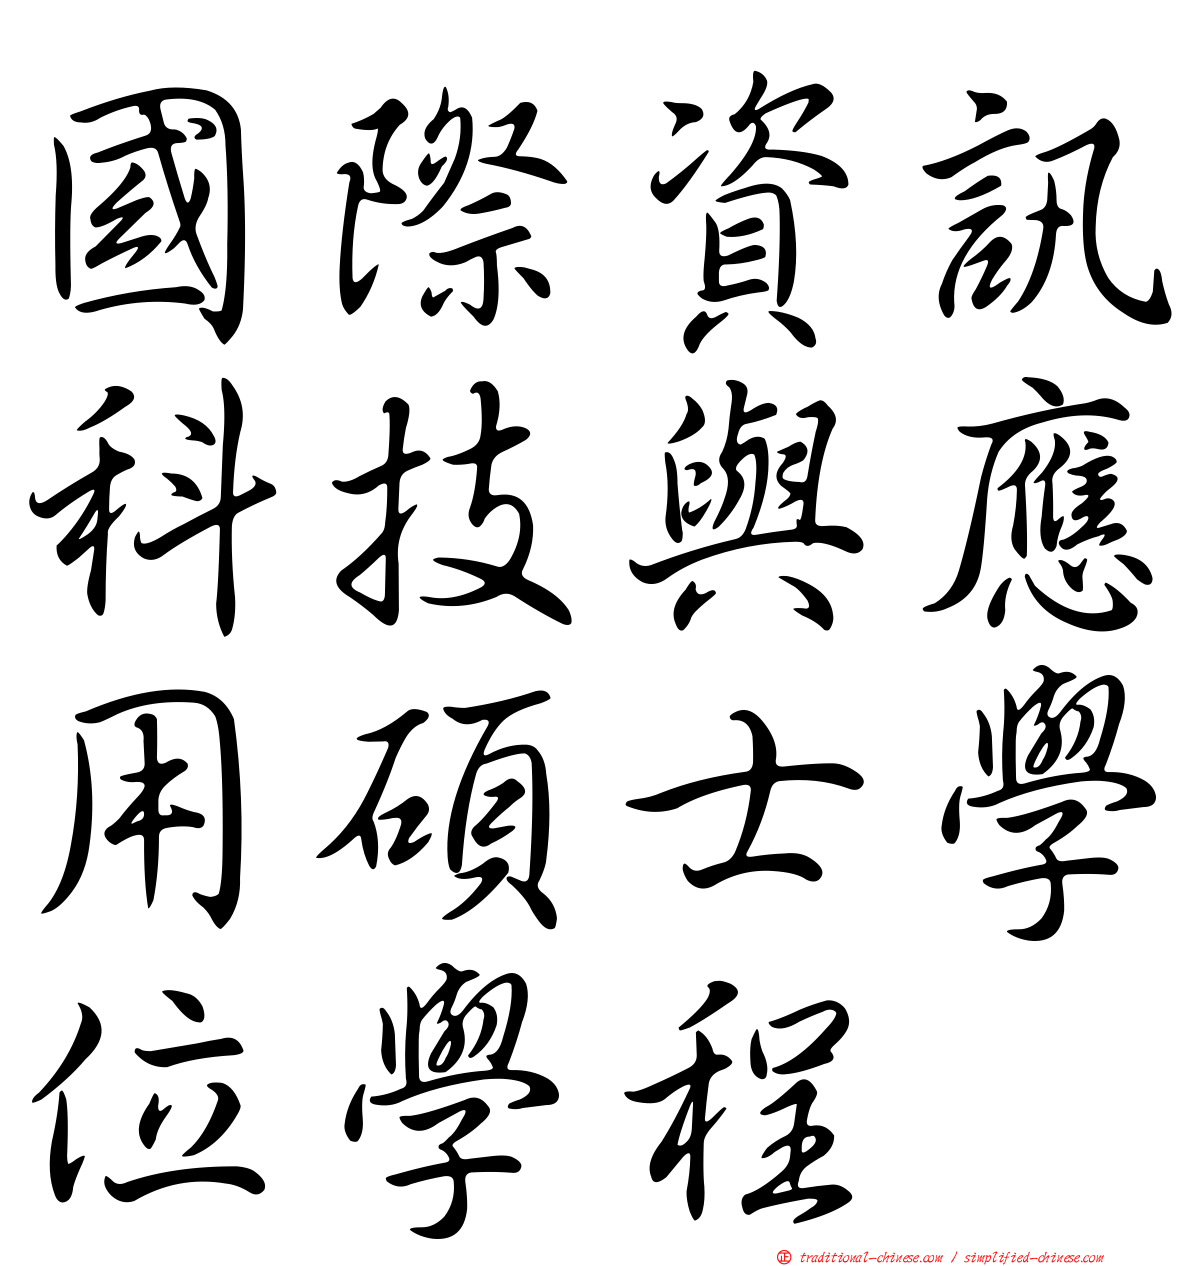 國際資訊
科技與應
用碩士學
位學程
正 traditional-chinese.com / simplified-chinese.com